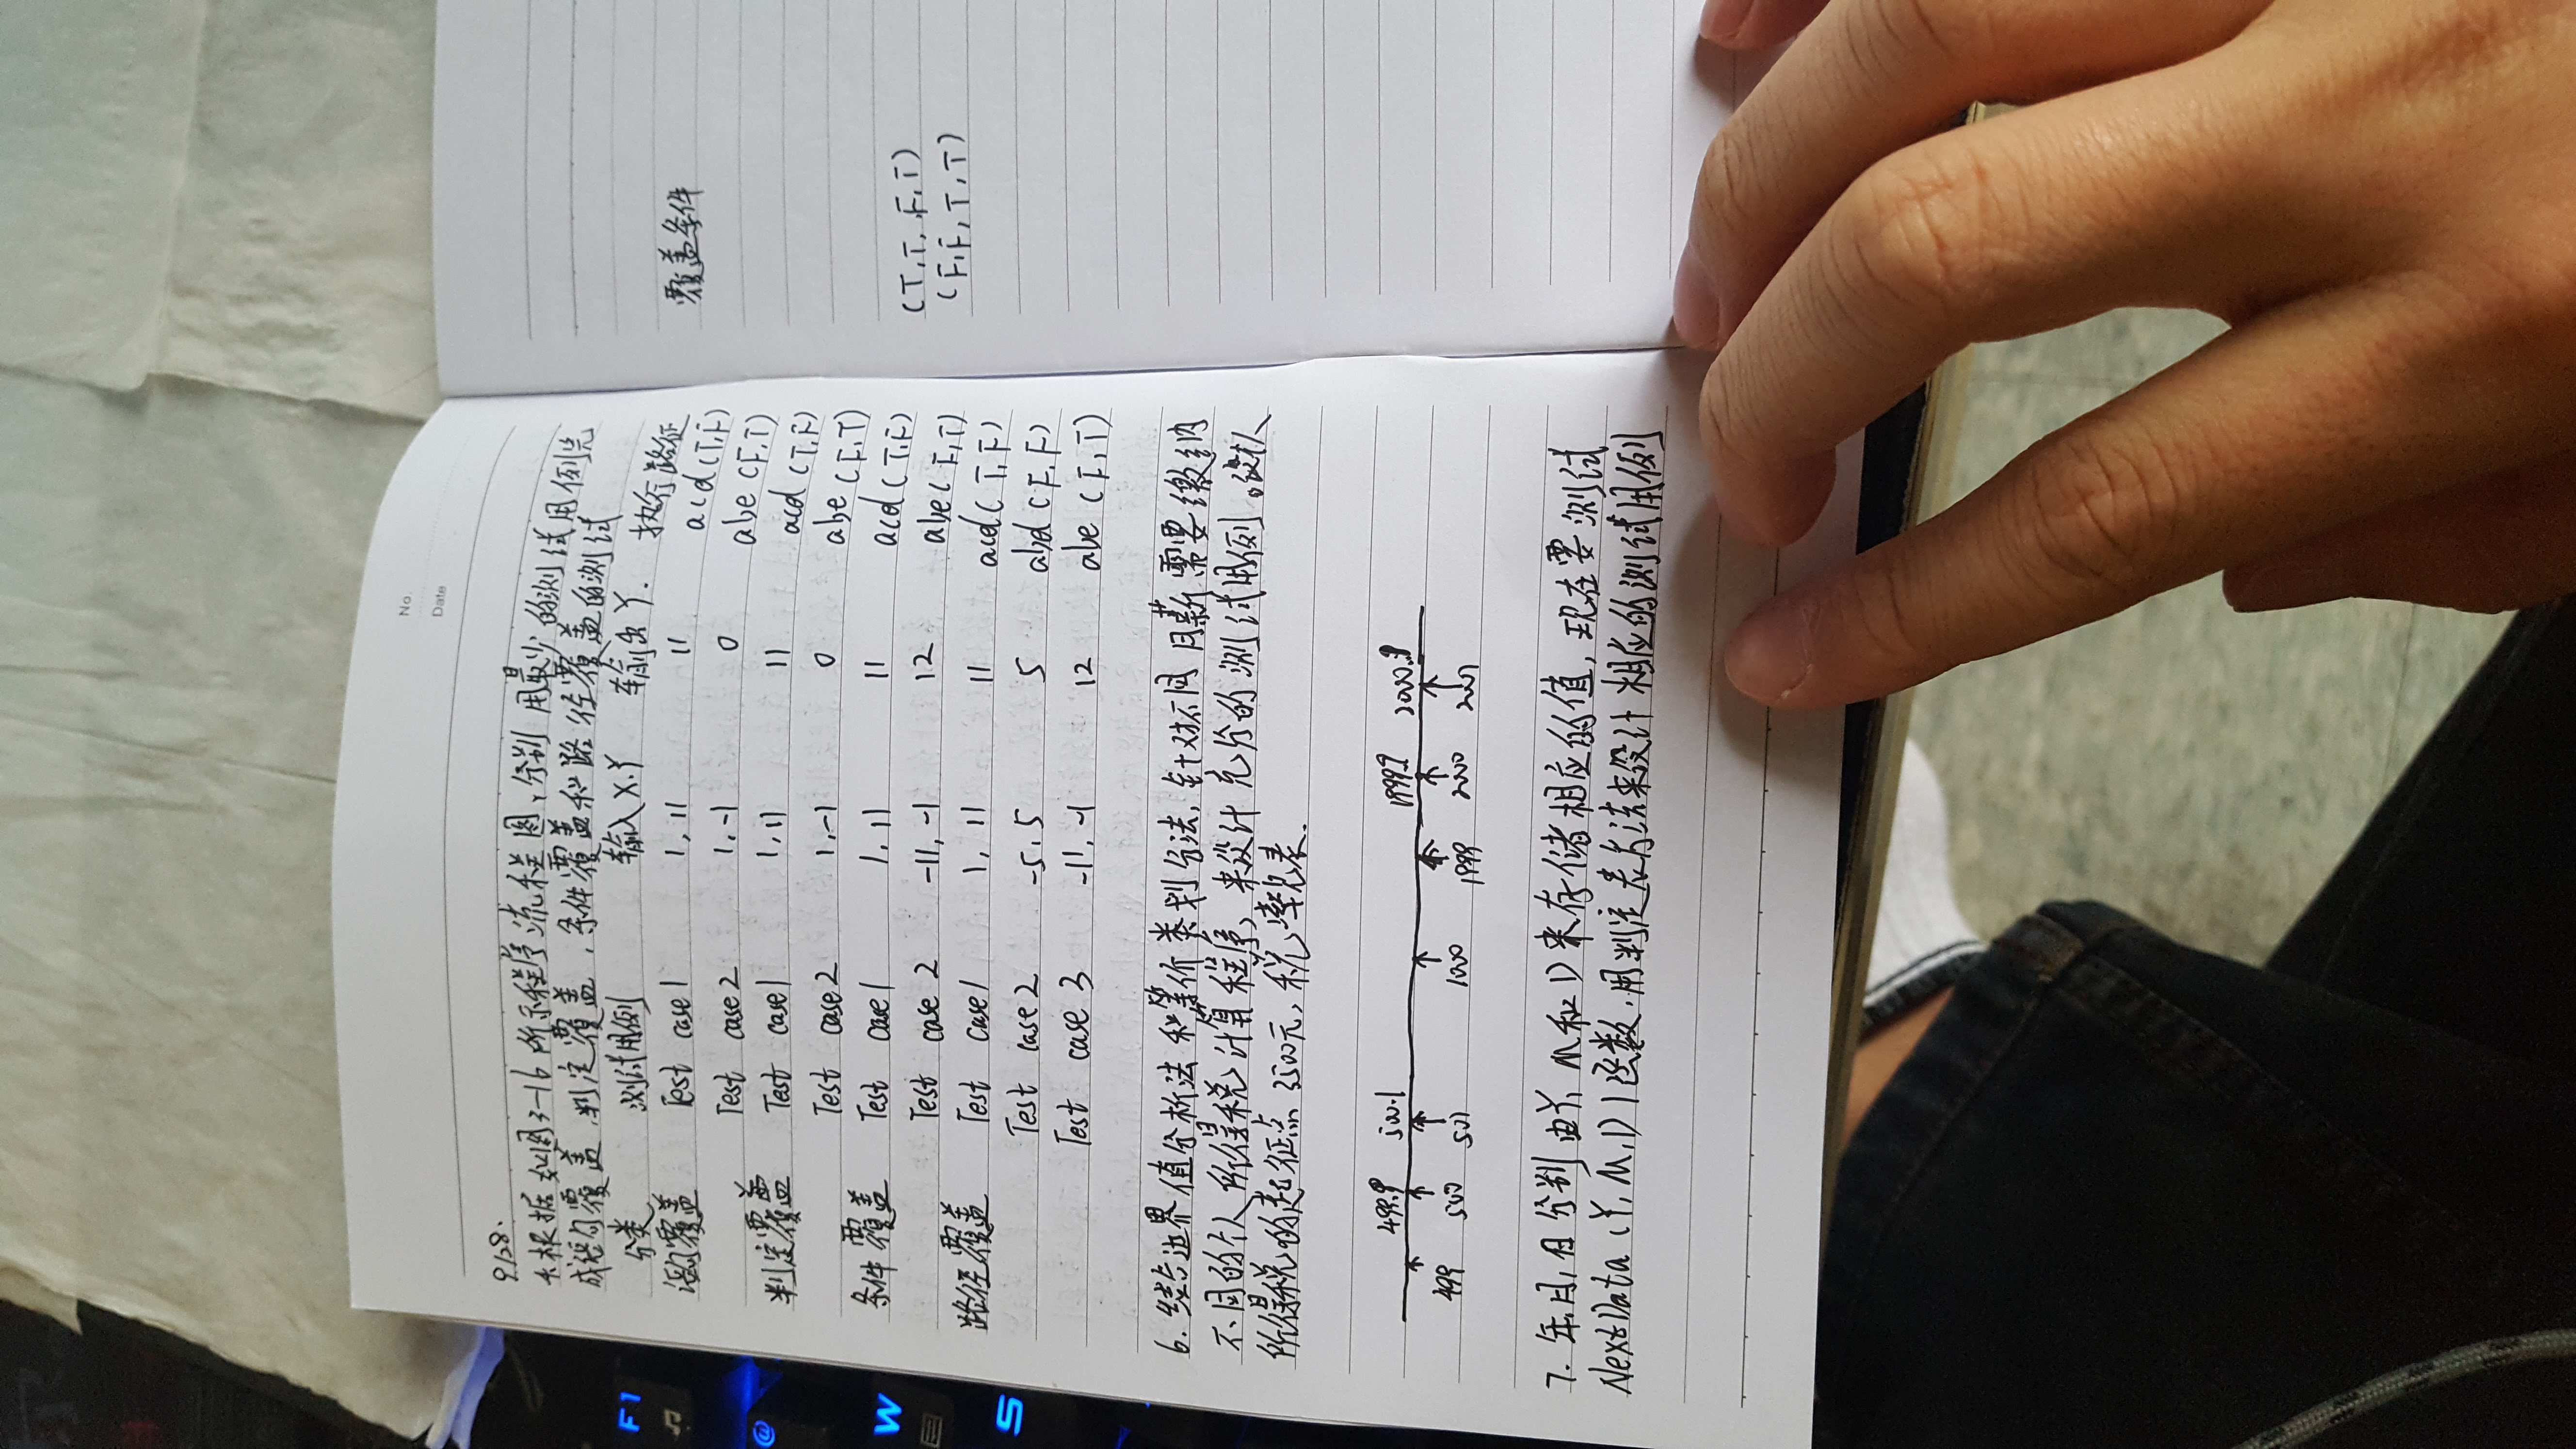 No.
Date
9/28.
4.根据如图3-16所示程序流程图,分别用最少的测试用例完
成语句覆盖,判定覆盖,条件覆盖和路径覆盖的测试
分类 测试用例 输入X.Y 输出Y. 执行路径 覆盖条件
语句覆盖 Test case1 1,11 11 acd(T,F)
Test case2 1,-1 0 abe(F,T)
判定覆盖 Test case1 1,11 11 acd(T,F)
Test case2 1,-1 0 abe(F,T)
条件覆盖 Test case1 1,11 11 acd(T,F) (T,T,F,T)
Test case 2 -11,-1 12 abe(F,T) (F,F,T,T)
路径覆盖 Test case1 1,11 11 acd(T,F)
Test case2 -5,5 5 abd(F,F)
Test case 3 -11,-1 12 abe(F,T)
6.结合边界值分析法和等价类划分法,针对不同月薪需要缴纳
不同的个人所得税计算程序,来设计充分的测试用例。设
所得税的起征点3500元,税率见表.
499.9 500.1 1999.9
499 500 501 1000 1999 2000 2001
7.年,月,日分别由Y,M和D来存储相应的值,现在要测试
NextData(Y,M,D)函数.用判定表方法来设计相应的测试用例
F1
@
W
S